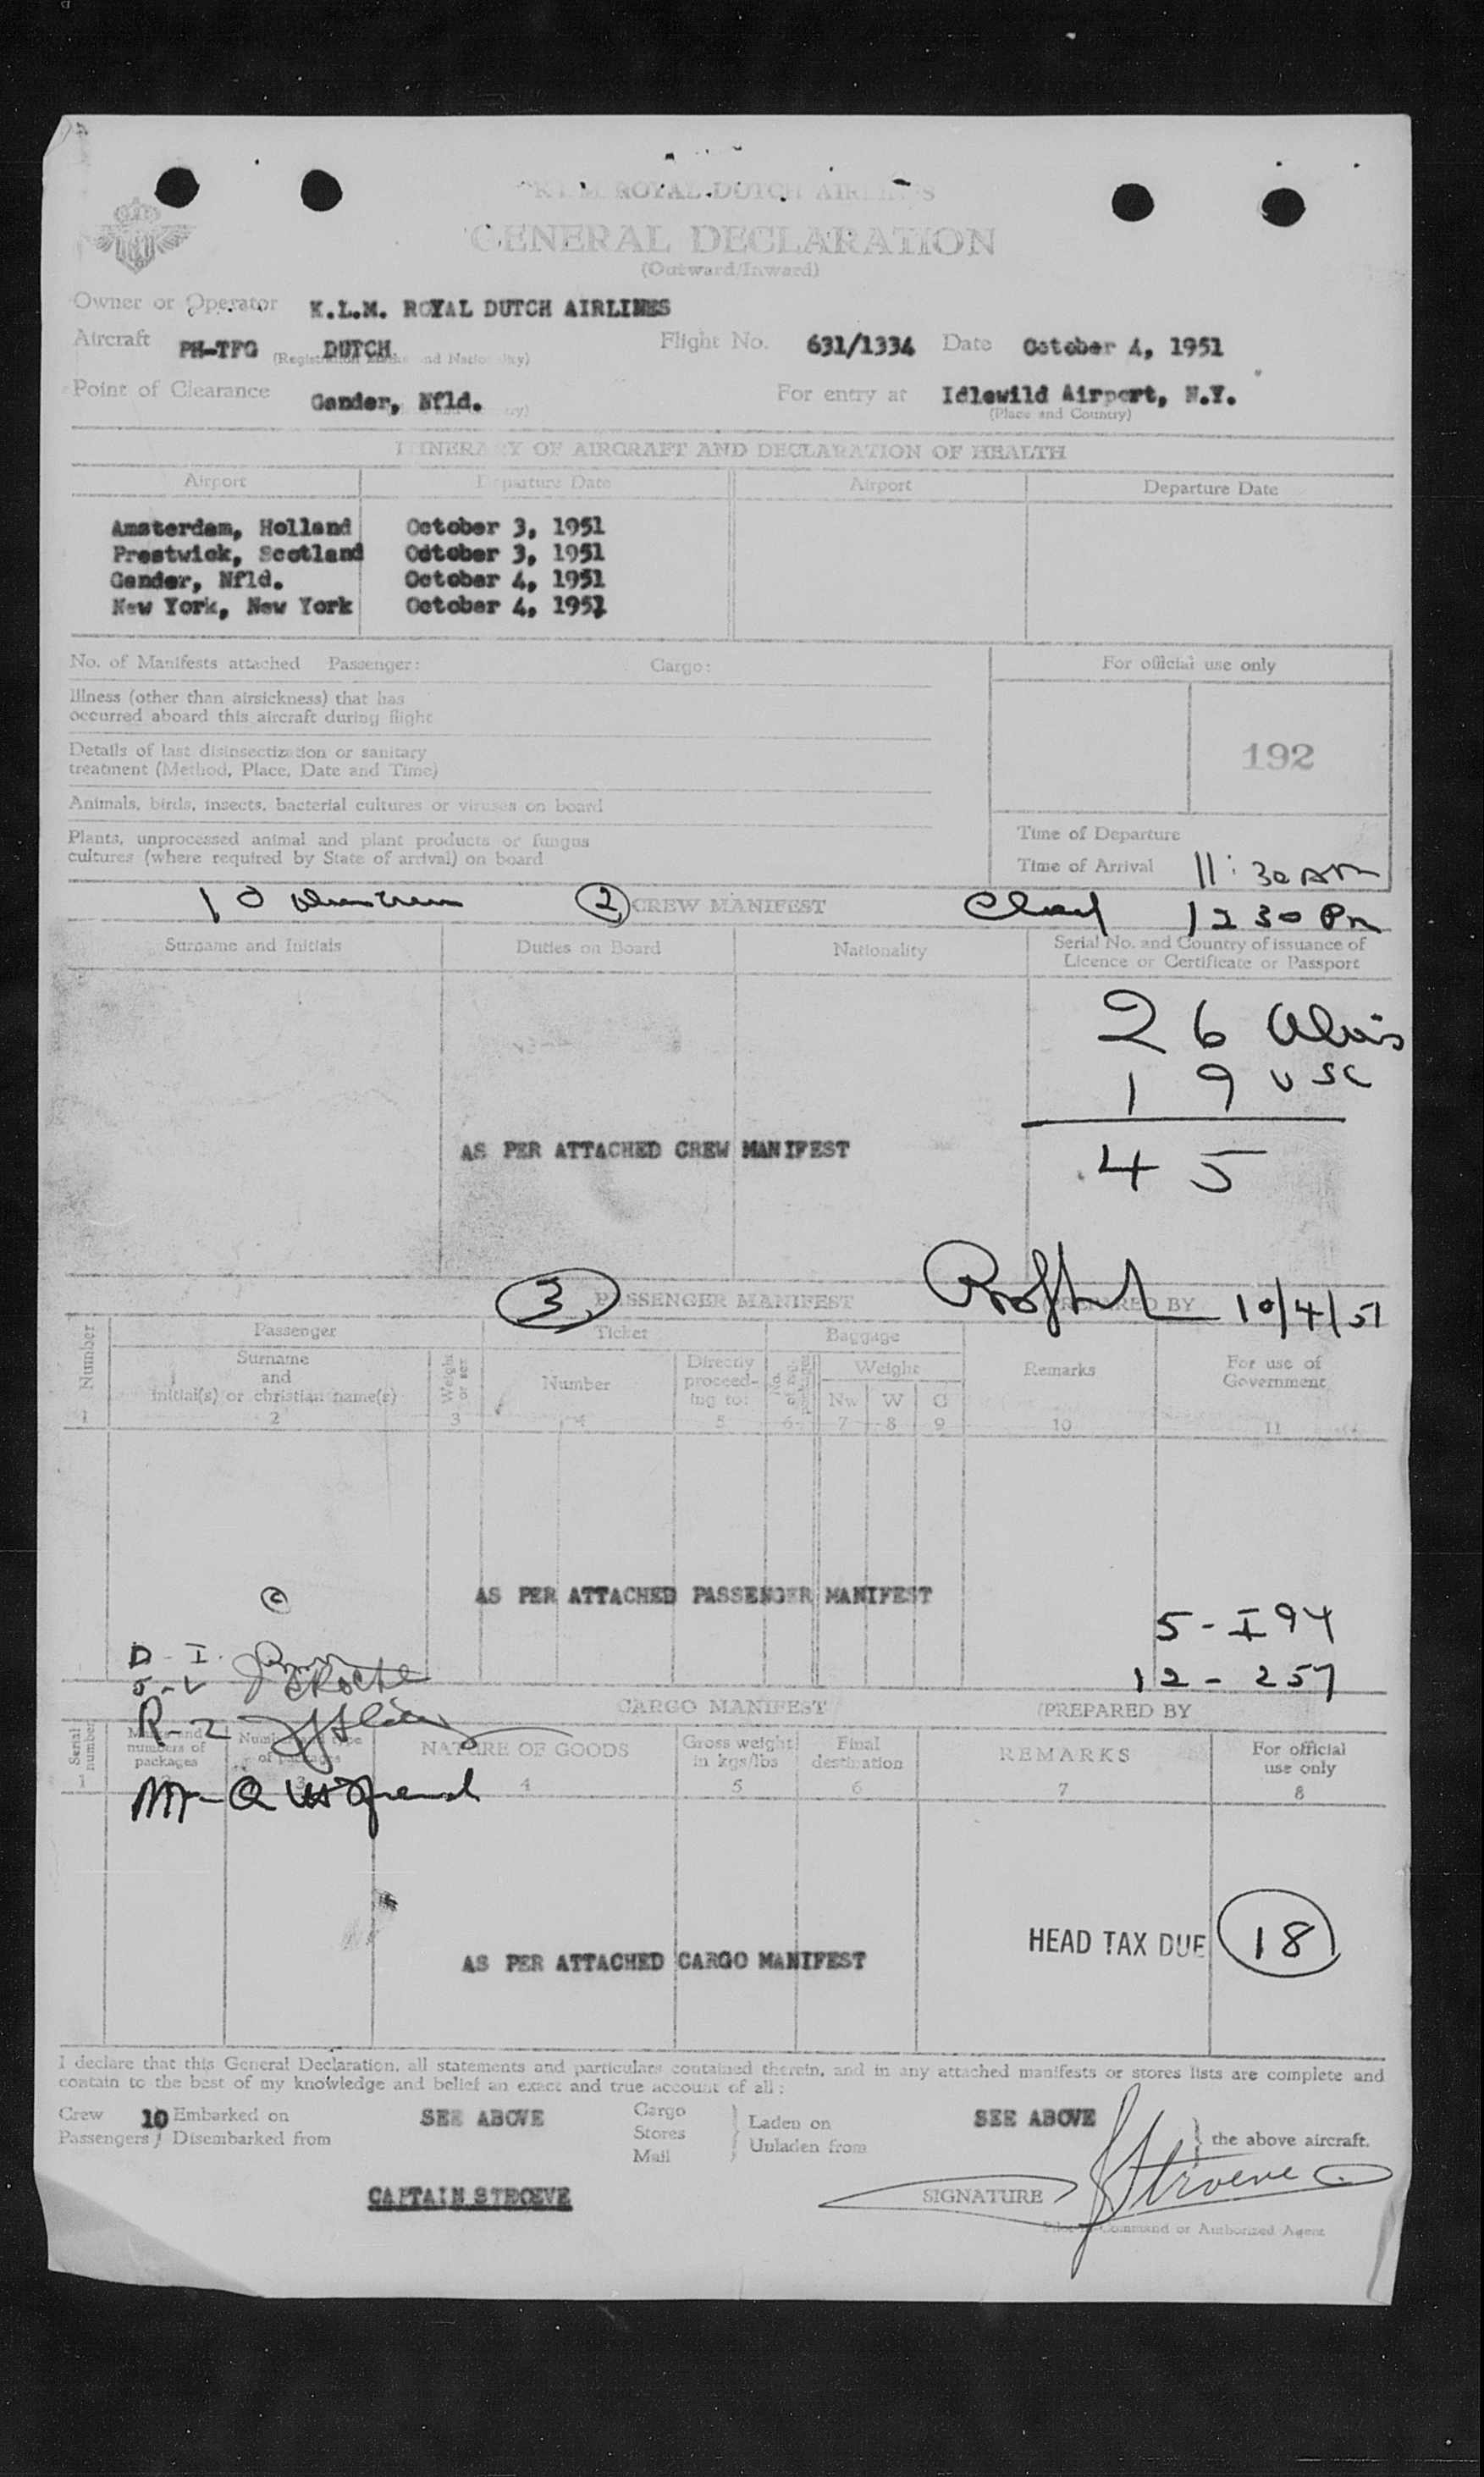 K.L.M. ROYAL DUTCH AIRLINES
GENERAL DECLARATION
(Outward/Inward)
Owner or Operator K.L.M. ROYAL DUTCH AIRLINES
Aircraft PH-TFG DUTCH (Registration Marks and Nationality) Flight No. 631/1334 Date October 4, 1951
Point of Clearance Gander, Nfld. For entry at Idlewild Airport, N.Y.
(Place and Country)
ITINERARY OF AIRCRAFT AND DECLARATION OF HEALTH
Airport Departure Date Airport Departure Date
Amsterdam, Holland October 3, 1951
Prestwick, Scotland Odtober 3, 1951
Gander, Nfld. October 4, 1951
New York, New York October 4, 1951
No. of Manifests attached Passenger: Cargo: For official use only
Illness (other than airsickness) that has
occurred aboard this aircraft during flight
192
Details of last disinsectization or sanitary
treatment (Method, Place, Date and Time)
Animals, birds, insects, bacterial cultures or viruses on board
Plants, unprocessed animal and plant products or fungus
cultures (where required by State of arrival) on board
Time of Departure
Time of Arrival 11:30 AM
10 2 CREW MANIFEST 1230 PM
Surname and Initials Duties on Board Nationality Serial No. and Country of issuance of
Licence or Certificate or Passport
26
19 USC
45
AS PER ATTACHED CREW MANIFEST
3 PASSENGER MANIFEST PREPARED BY 10/4/51
Number Passenger Ticket Baggage
Surname
and
initial(s) or christian name(s)
Weight or sex
Number
Directly
proceed-
ing to:
No. of
Weight
Nw W G
Remarks
For use of
Government
1 2 3 4 5 6 7 8 9 10 11
AS PER ATTACHED PASSENGER MANIFEST
C
5 - I 94
12 - 257
D - I.
R-2
CARGO MANIFEST PREPARED BY
Serial
number
numbers of
packages
of packages
NATURE OF GOODS
Gross weight
in kgs/lbs
Final
destination
REMARKS
For official
use only
1 3 4 5 6 7 8
HEAD TAX DUE 18
AS PER ATTACHED CARGO MANIFEST
I declare that this General Declaration, all statements and particulars contained therein, and in any attached manifests or stores lists are complete and
contain to the best of my knowledge and belief an exact and true account of all:
Crew 10 Embarked on SEE ABOVE Cargo Laden on SEE ABOVE
Passengers Disembarked from Stores Unladen from the above aircraft.
Mail
CAPTAIN STROEVE SIGNATURE Stroeve
Pilot in Command or Authorized Agent